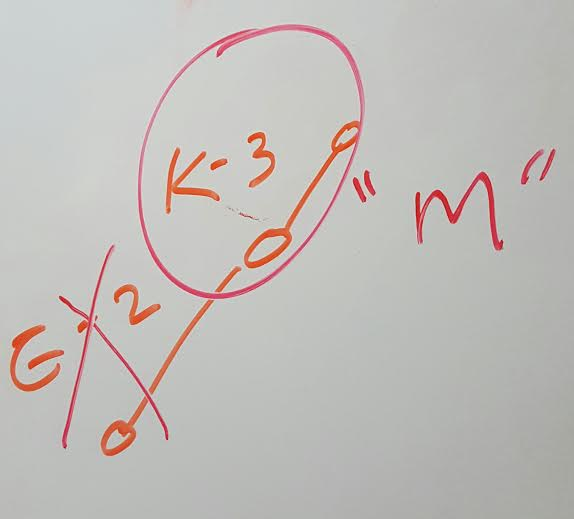 K-3
"M"
E-2